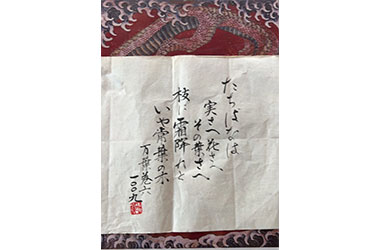 たちばなは
実さへ花さへ
その葉さへ
枝に霜降れど
いや常葉の木
万葉巻六
一〇〇九